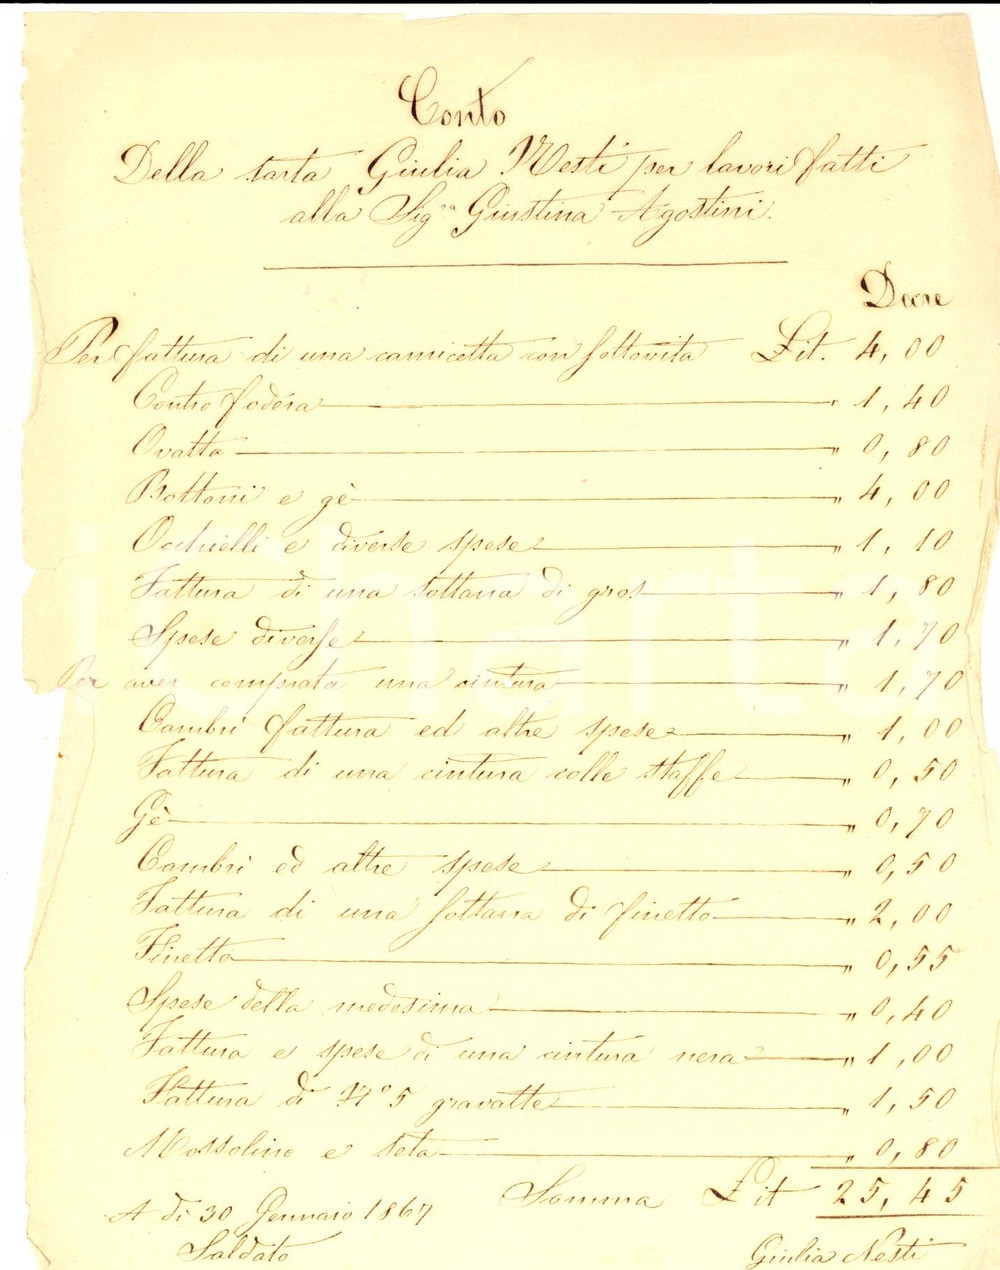 Conto
Della sarta Giulia Nesti per lavori fatti
alla Sig.ra Giustina Agostini.
Deere
Per fattura di una camicetta con sottovita Lit. 4,00
Contro fodera " 1,40
Ovatta " 0,80
Bottoni e gè " 4,00
Occhielli e diverse spese " 1,10
Fattura di una sottana di gros " 1,80
Spese diverse " 1,70
Per aver comprata una cintura " 1,70
Cambrì fattura ed altre spese " 1,00
Fattura di una cintura colle staffe " 0,50
Gè " 0,70
Cambrì ed altre spese " 0,50
Fattura di una sottana di finetto " 2,00
Finetto " 0,55
Spese della medesima " 0,40
Fattura e spese di una cintura nera " 1,00
Fattura di N° 5 gravatte " 1,50
Mossolino e seta " 0,80
Somma Lit 25,45
A dì 30 Gennaio 1867
Saldato
Giulia Nesti